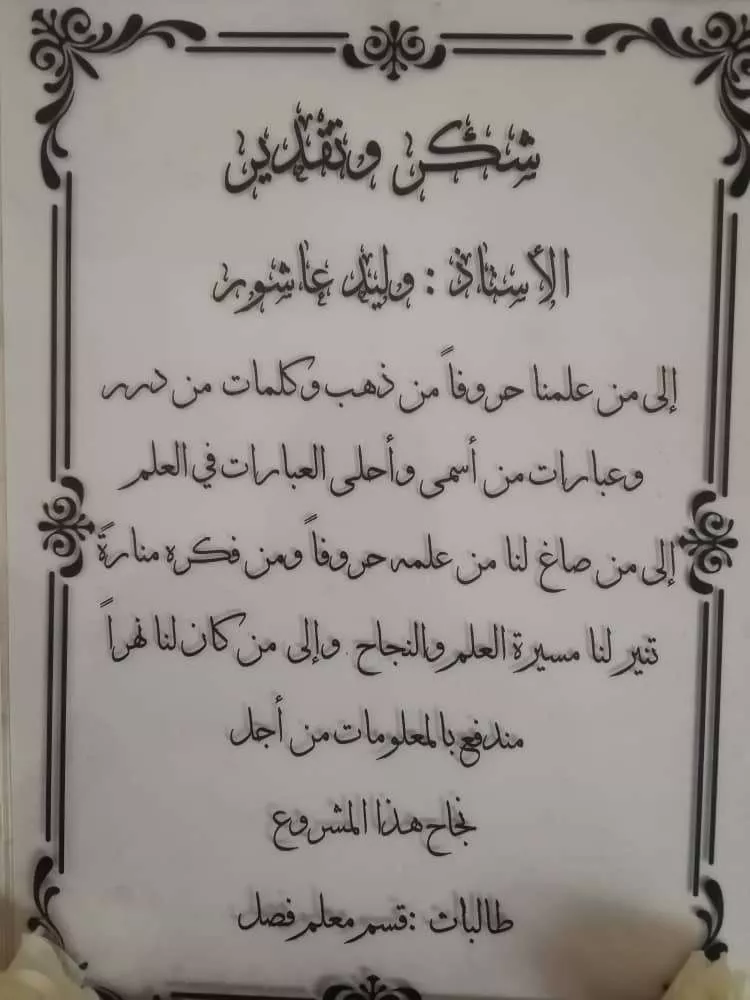 شكر وتقدير
الأستاذ : وليد عاشور
إلى من علمنا حروفاً من ذهب وكلمات من درر
وعبارات من أسمى وأحلى العبارات في العلم
إلى من صاغ لنا من علمه حروفاً ومن فكره منارةً
تنير لنا مسيرة العلم والنجاح . وإلى من كان لنا نهراً
مندفع بالمعلومات من أجل
نجاح هذا المشروع
طالبات :قسم معلم فصل